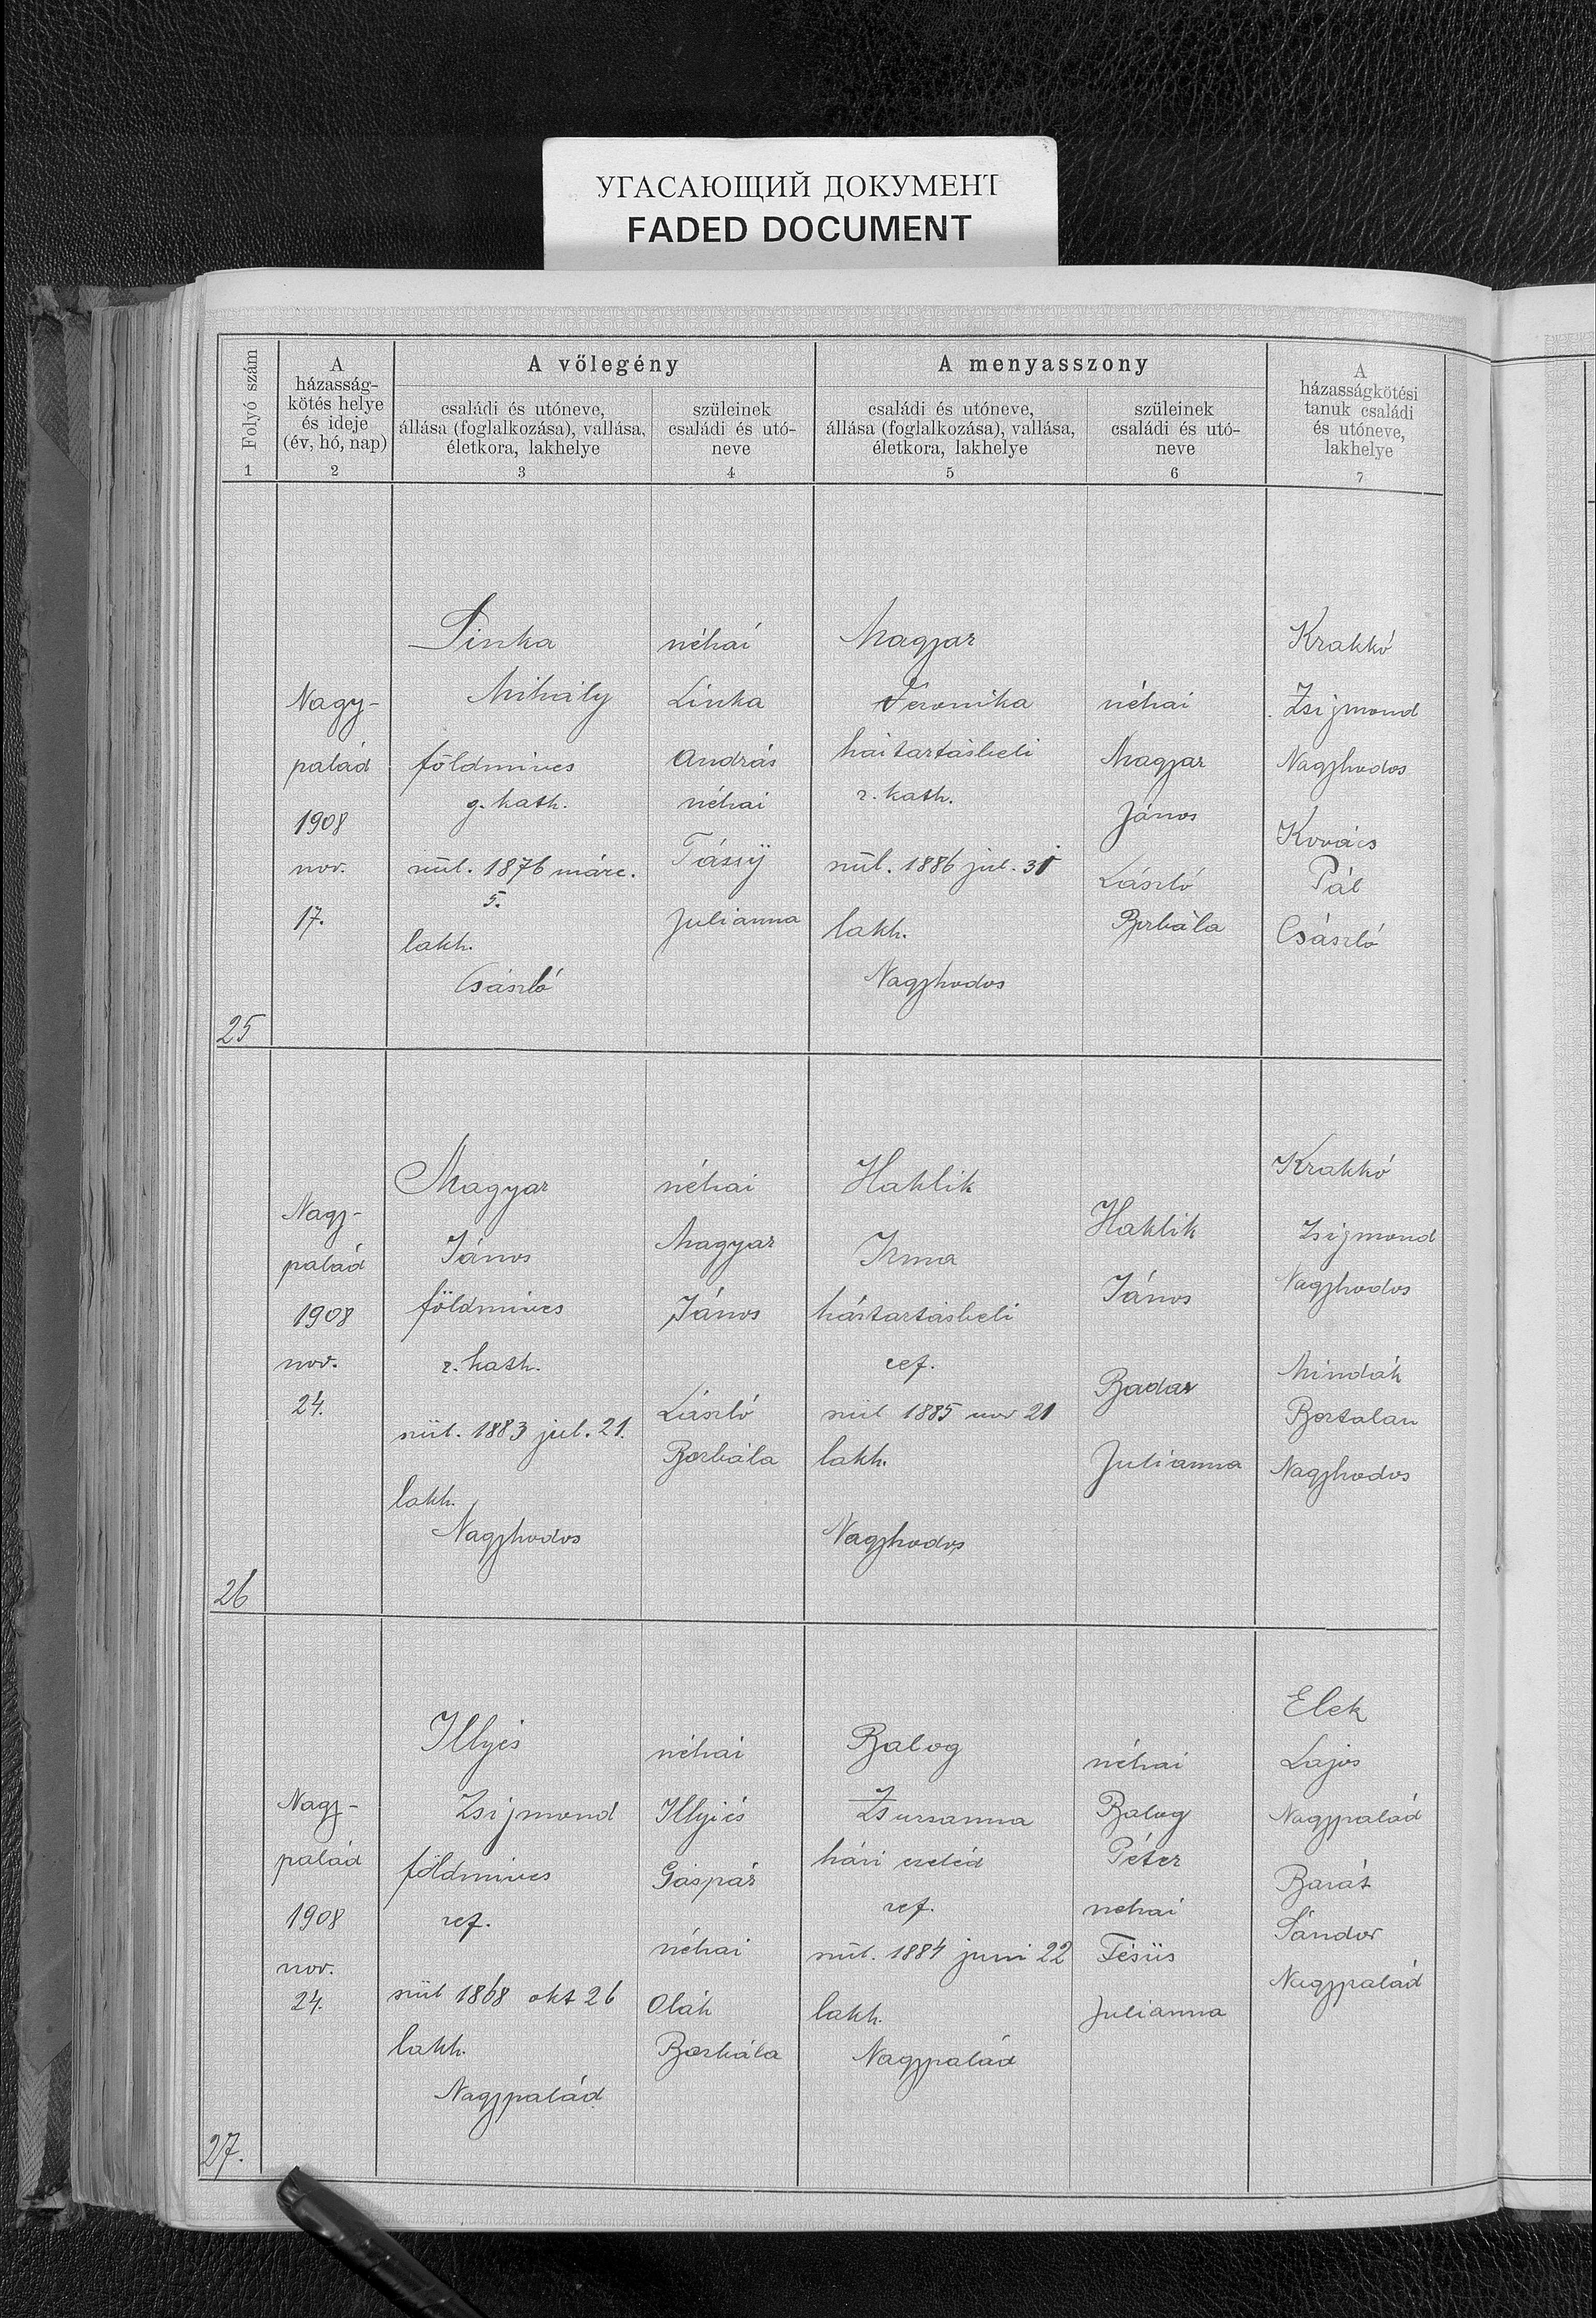 УГАСАЮЩИЙ ДОКУМЕНТ
FADED DOCUMENT
Folyó szám
1
A
házasság-
kötés helye
és ideje
(év, hó, nap)
2
A vőlegény
családi és utóneve,
állása (foglalkozása), vallása,
életkora, lakhelye
3
szüleinek
családi és utó-
neve
4
A menyasszony
családi és utóneve,
állása (foglalkozása), vallása,
életkora, lakhelye
5
szüleinek
családi és utó-
neve
6
A
házasságkötési
tanuk családi
és utóneve,
lakhelye
7
25
Nagy-
palád
1908
nov.
17.
Linka
Mihály
földmives
g. kath.
szül. 1876 márc.
5.
lakh.
Császló
néhai
Linka
András
néhai
Julianna
Magyar
Veronika
háztartásbeli
r. kath.
szül. 1886 jul. 31
lakh.
Nagyhodos
néhai
Magyar
János
László
Borbála
Krakkó
Zsigmond
Nagyhodos
Kovács
Pál
Császló
26
Nagy-
palád
1908
nov.
24.
Magyar
János
földmives
r. kath.
szül. 1883 jul. 21.
lakh.
Nagyhodos
néhai
Magyar
János
László
Borbála
Haklik
Irma
háztartásbeli
ref.
szül 1885 nov 21
lakh.
Nagyhodos
Haklik
János
Badar
Julianna
Krakkó
Zsigmond
Nagyhodos
Mindák
Bertalan
Nagyhodos
27.
Nagy-
palád
1908
nov.
24.
Illyés
Zsigmond
földmives
ref.
szül 1868 okt 26
lakh.
Nagypalád
néhai
Illyés
Gáspár
néhai
Oláh
Borbála
Balog
Zsuzsanna
házi cseléd
ref.
szül. 1884 juni 22
lakh.
Nagypalád
néhai
Balog
Péter
nehai
Fésüs
Julianna
Elek
Lajos
Nagypalád
Barát
Sándor
Nagypalád